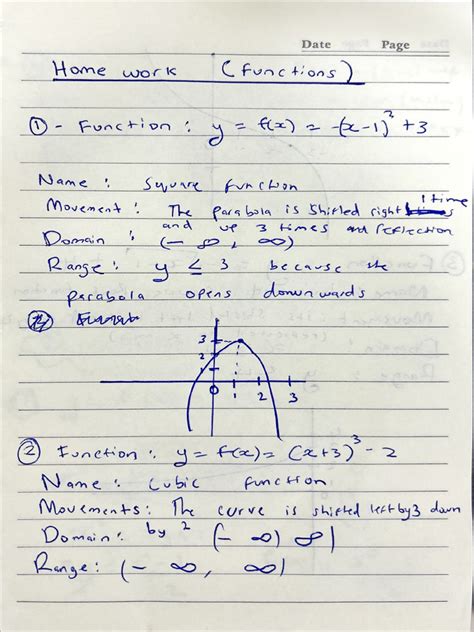 Date Page
Home work (Functions)
① - Function : y = f(x) = -(x-1)² + 3
Name : Square function
1 time
Movement : The parabola is shifted right
and up 3 times and reflection
Domain : (- ∞, ∞)
Range : y ≤ 3 because the
parabola opens downwards
3
2
1
0 1 2 3
② Function : y = f(x) = (x+3)³ - 2
Name : Cubic function
Movements : The curve is shifted left by 3 down
by 2
Domain : (- ∞) ∞)
Range : (- ∞, ∞)